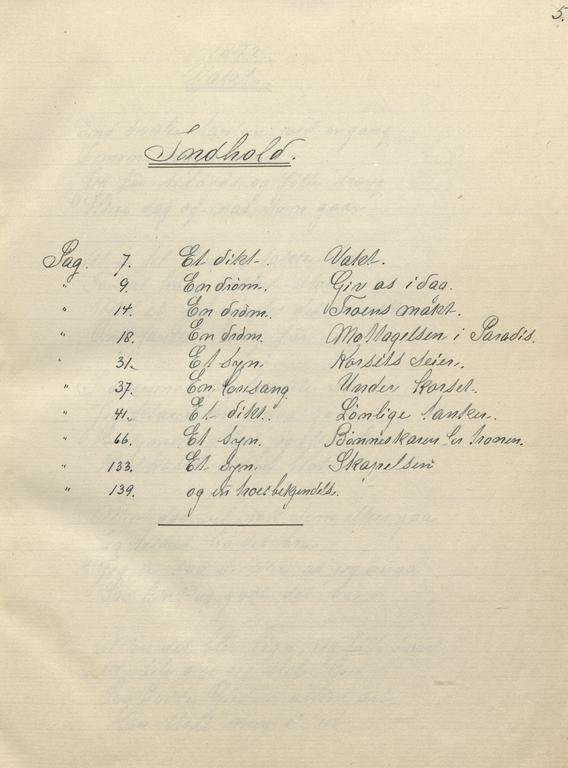 5.
Indhold.
Pag. 7. Et dikt. Vakt.
" 9. En drøm. Giv os idag.
" 14. En drøm. Troens makt.
" 18. En drøm. Mottagelsen i Paradis.
" 31. Et syn. Korsets seier.
" 37. En lovsang. Under korset.
" 41. Et dikt. Lønlige tanker.
" 66. Et syn. Bønneskaren for tronen.
" 133. Et syn. Skapelsen
" 139. og en troesbekjendelse.